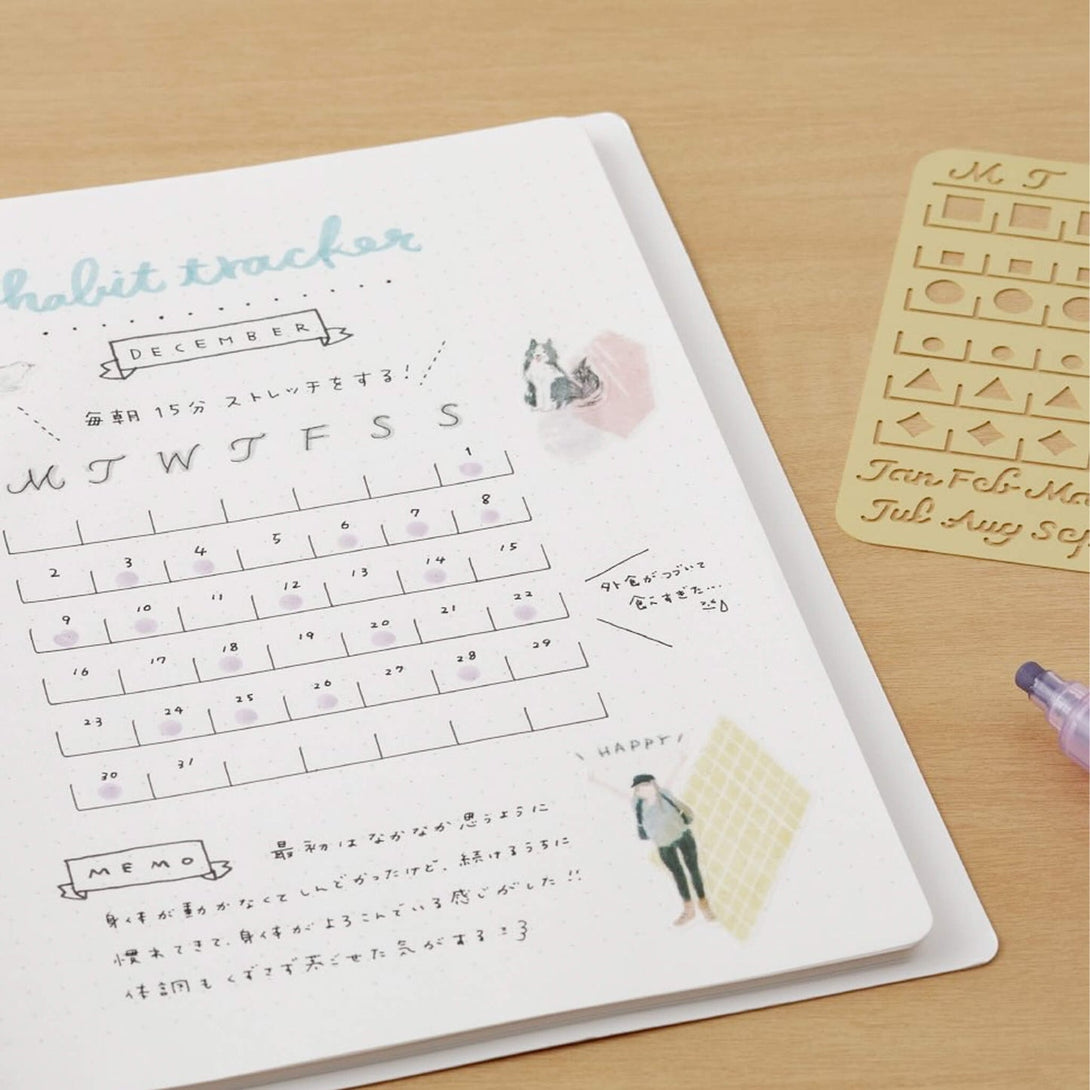 habit tracker
DECEMBER
毎朝 15分 ストレッチをする!
M T W T F S S
1
2 3 4 5 6 7 8
9 10 11 12 13 14 15
16 17 18 19 20 21 22
23 24 25 26 27 28 29
30 31
外食がつづいて
食べすぎた...
HAPPY
MEMO 最初はなかなか思うように
身体が動かなくてしんどかったけど、続けるうちに
慣れてきて、身体がよろこんでいる感じがした!!
体調もくずさず過ごせた気がする
M T
Jan Feb Ma
Jul Aug Sep